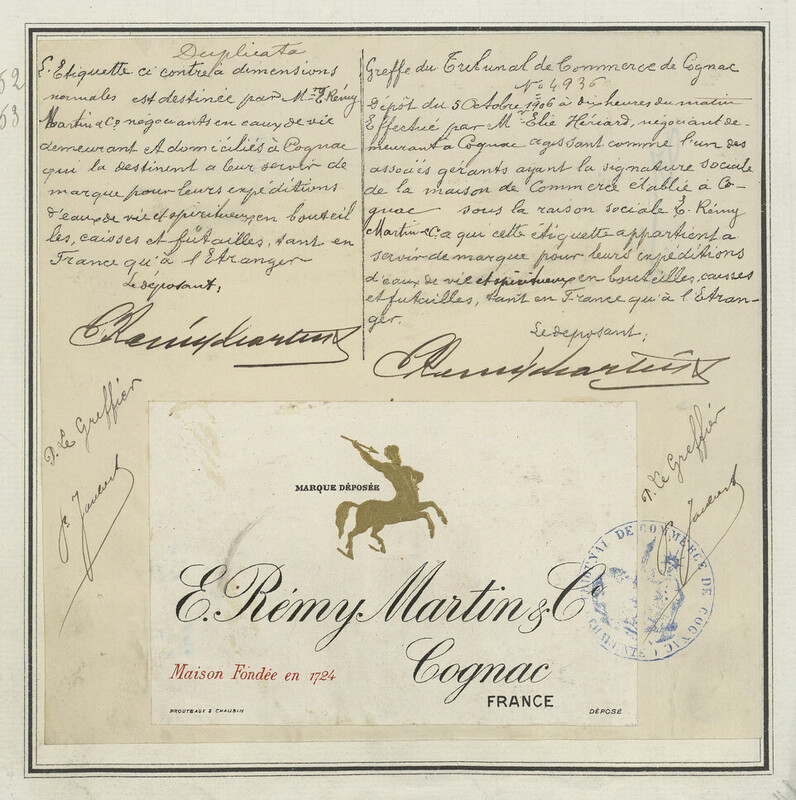 Duplicata
L'Etiquette ci contre à dimensions
normales est destinée par M.rs E. Rémy
Martin & Co négociants en eaux de vie
demeurant et domiciliés à Cognac
qui la destinent a leur servir de
marque pour leurs expéditions
d'eaux de vie et spiritueux en bouteil
les, caisses et fûtailles, tant en
France qu'à l'Etranger
Le déposant,
E Remy Martin & Co
Greffe du Tribunal de Commerce de Cognac
No 4936
Dépôt du 5 Octobre 1906 à dix heures du matin
Effectué par Mr Elie Hériard, négociant de-
meurant à Cognac agissant comme l'un des
associés gérants ayant la signature sociale
de la maison de Commerce établie à Co-
gnac sous la raison sociale E. Rémy
Martin & Co a qui cette étiquette appartient a
servir de marque pour leurs expéditions
d'eaux de vie et spiritueux en bouteilles, caisses
et futailles, tant en France qu'à l'Etran-
ger.
Le déposant,
E Remy Martin & Co
52
53
P. Le Greffier
P. Le Greffier
MARQUE DÉPOSÉE
E. Rémy Martin & Co
Cognac
FRANCE
Maison Fondée en 1724
PROUTEAUX & CHAUBIN
DÉPOSÉ
TRIBUNAL DE COMMERCE DE COGNAC
(CHARENTE)